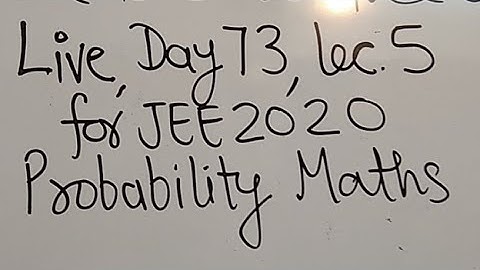 Live, Day 73, lec. 5
for JEE 2020
Probability Maths